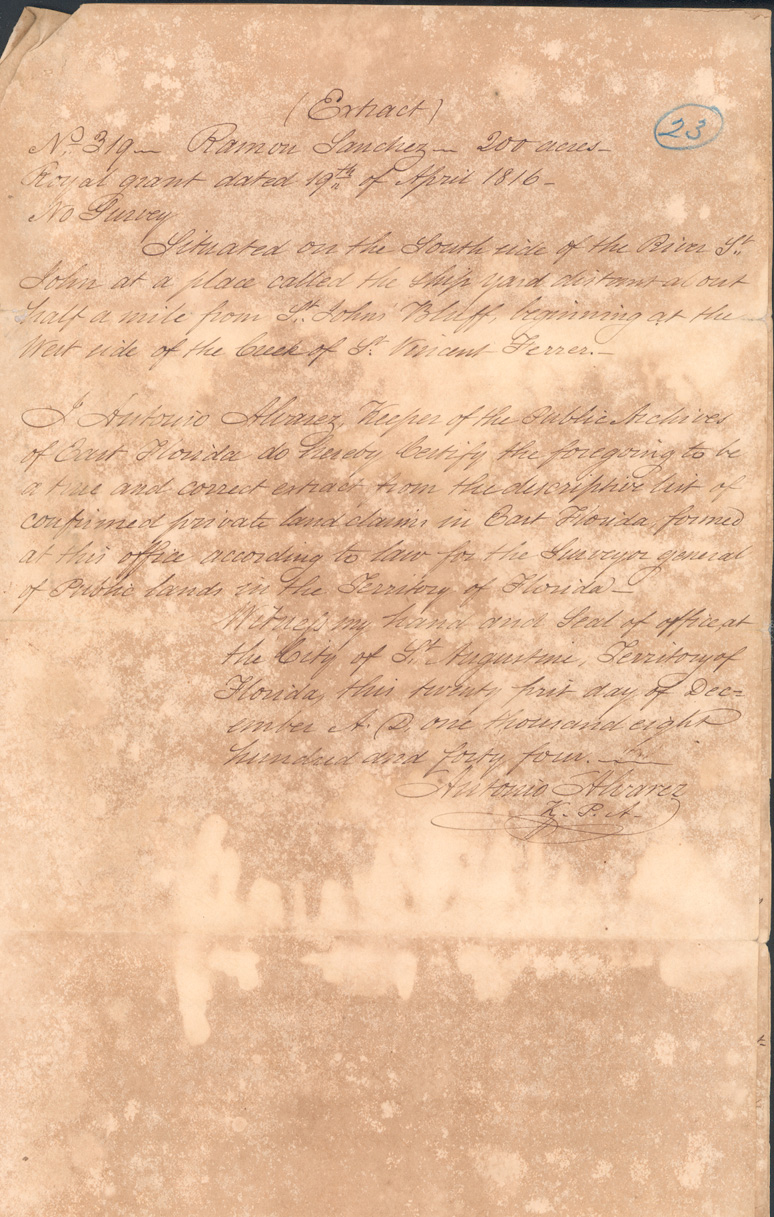 (Extract)
23
No. 319 — Ramon Sanchez — 200 acres —
Royal grant dated 19th of April 1816 —
No Survey
Situated on the South side of the River St.
John at a place called the Ship yard distant about
half a mile from St. Johns' Bluff, beginning at the
West side of the Creek of St. Vincent Ferrer. —
I Antonio Alvarez, Keeper of the Public Archives
of East Florida do hereby Certify the foregoing to be
a true and correct extract from the descriptive list of
confirmed private land claims in East Florida, formed
at this office according to law for the Surveyor general
of Public lands in the Territory of Florida —
Witness my hand and Seal of office, at
the City of St. Augustine, Territory of
Florida, this twenty first day of Dec=
ember A. D. one thousand eight
hundred and forty four. —
Antonio Alvarez
K. P. A.